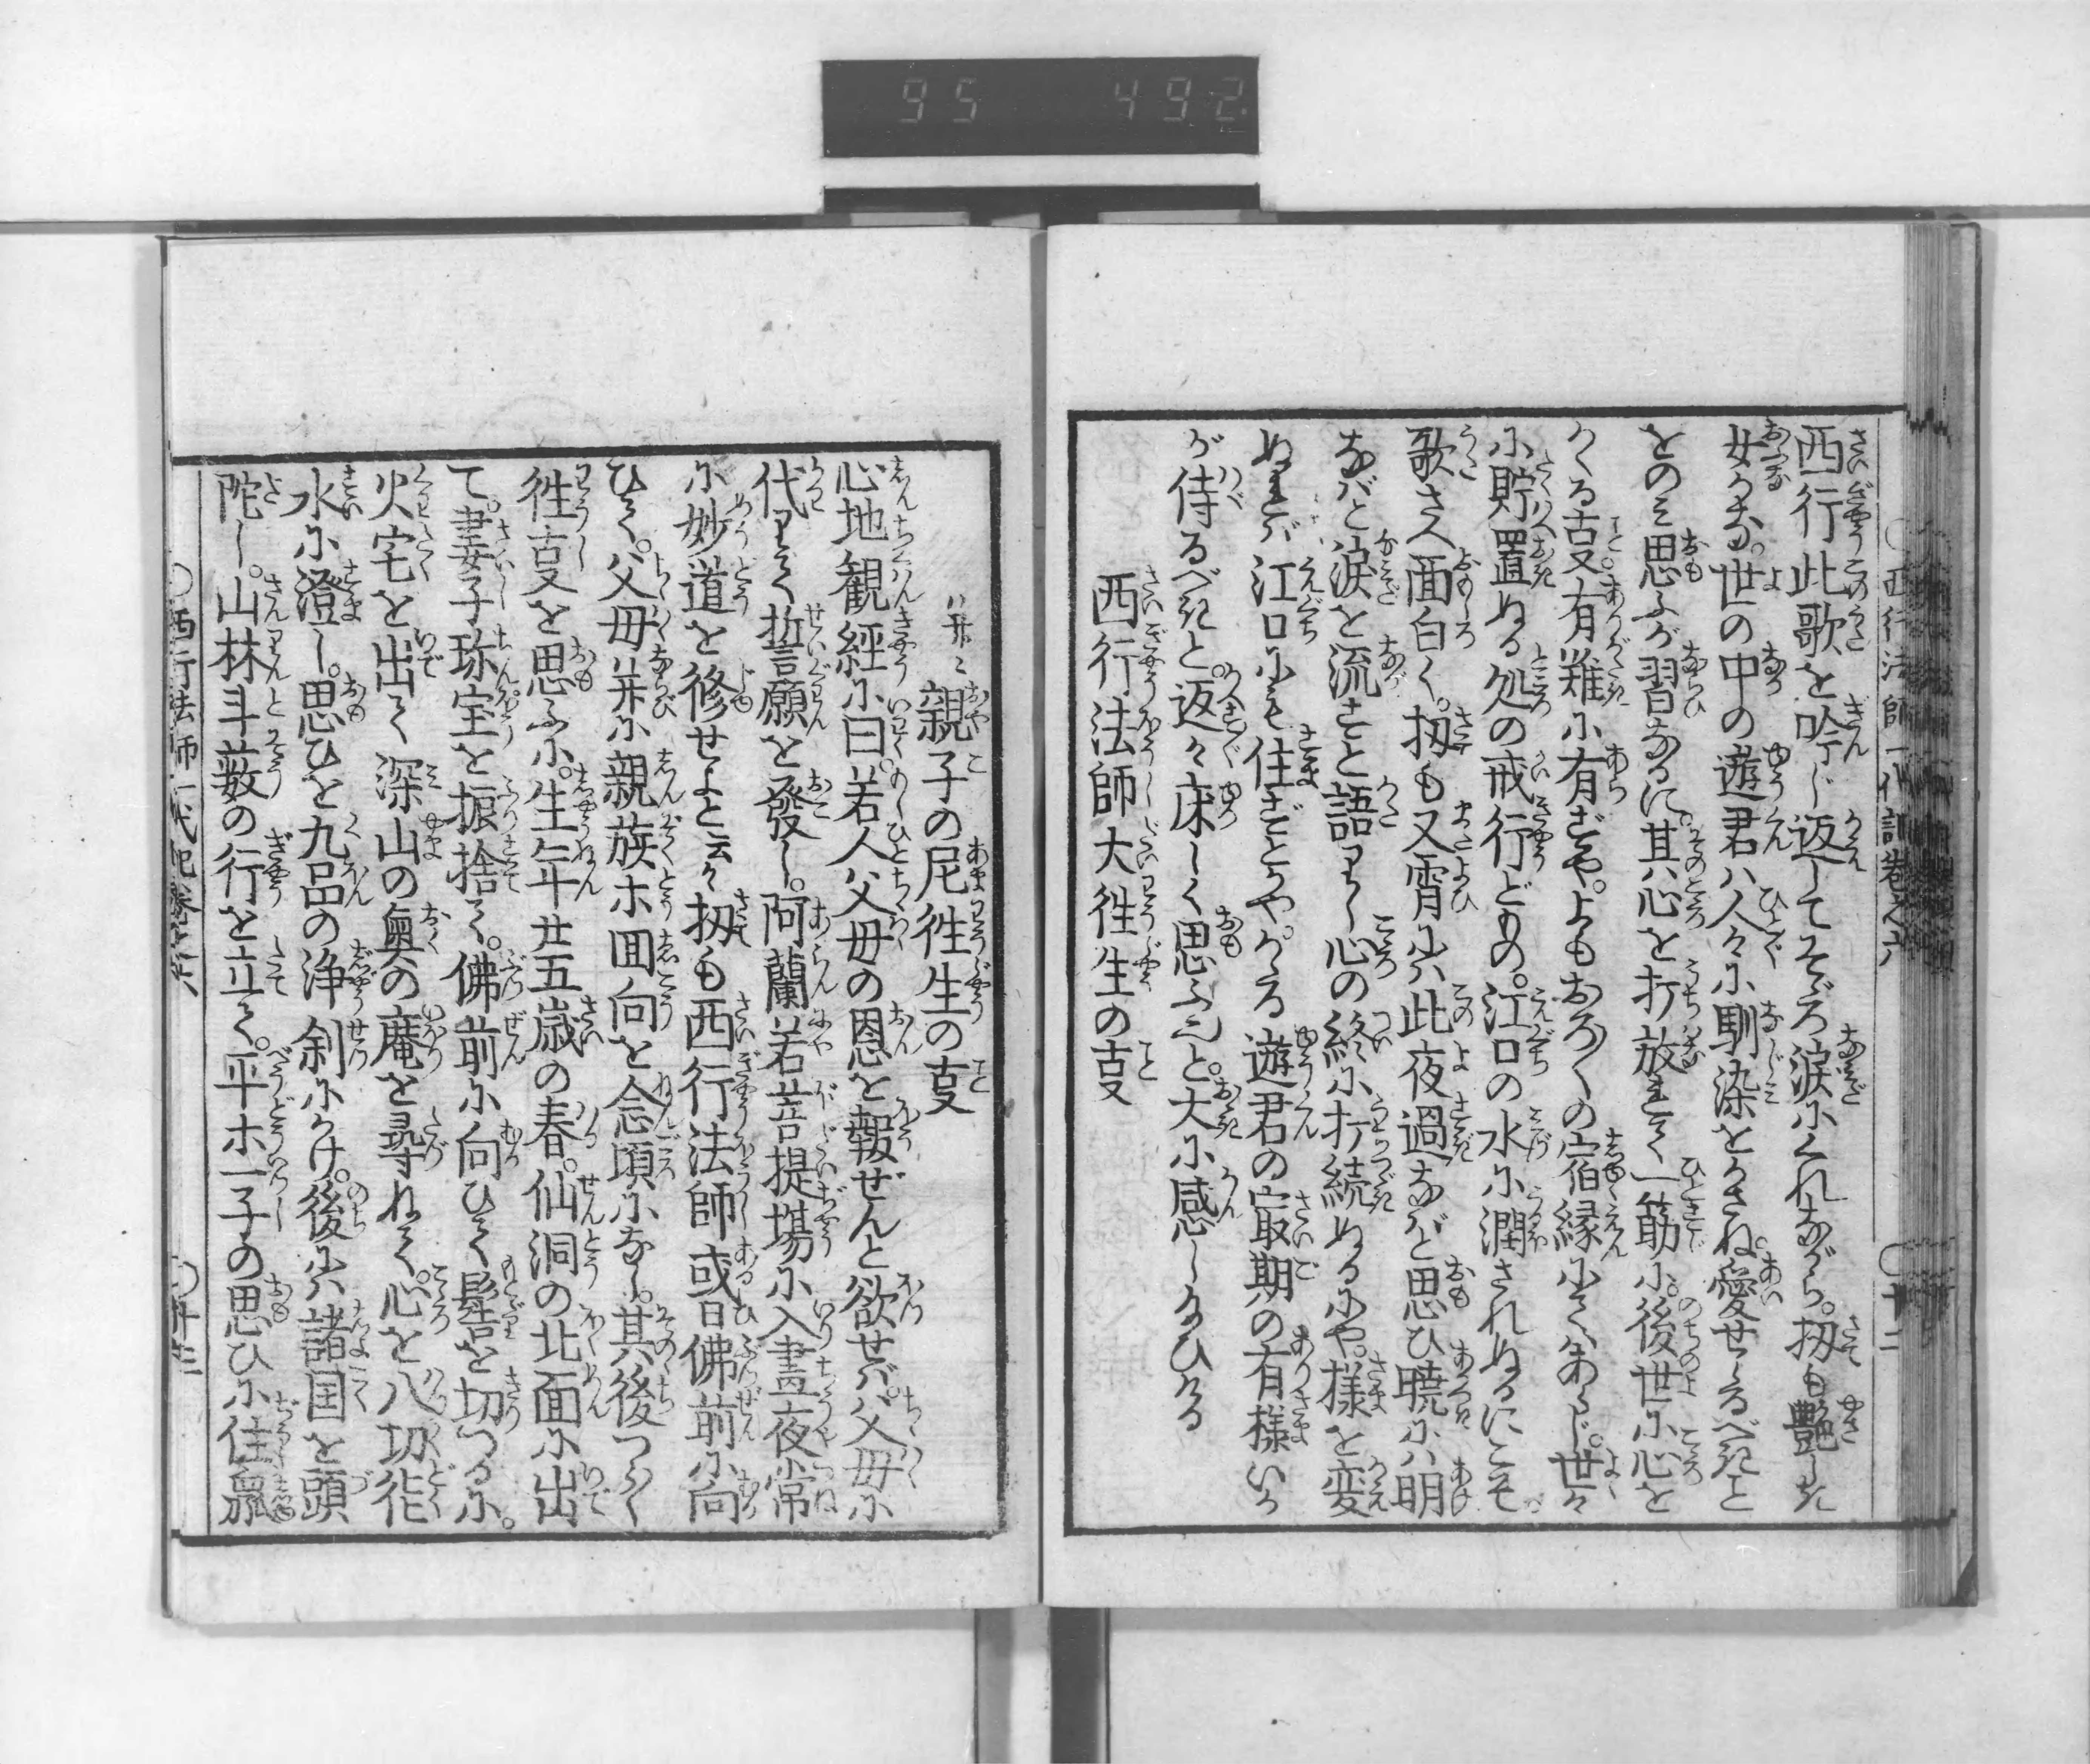 95 492
西行法師一代記巻之六 〇廿二
西行此歌を吟じ返してそゞろ涙にくれながら。扨も艶しき
女かな。世の中の遊君ハ人々に馴染をかさね。愛せらるべきと
をのミ思ふが習なるに。其心を打放れて一筋に。後世に心を
かくる㕝有難に有ずや。よもおろ〳〵の宿縁にてハあらじ。世々
に貯置ぬる処の戒行どもの。江口の水に潤されぬるにこそ
歌さへ面白く。扨も又宵にハ此夜過なバと思ひ暁にハ明
なバと涙を流すと語りし心の終に打続ぬるにや。様を変
ぬれバ江口にも住ずとや。かゝる遊君の㝡期の有様いか
が侍るべきと。返々床しく思ふ也と。大に感じ給ひける
西行法師大徃生の㕝
并ニ親子の尼徃生の㕝
心地観經に曰。若人父母の恩を報ぜんと欲せバ。父母に
代りて誓願を發し。阿蘭若菩提場に入晝夜常
に妙道を修せよと云々扨も西行法師或日佛前に向
ひて。父母并に親族ホ囬向を念頃になし。其後つく〴〵
徃㕝を思ふに。生年廿五歳の春。仙洞の北面に出
て。妻子珎宝を振捨て。佛前に向ひて髻を切つるに。
火宅を出て深山の奥の庵を尋ねて。心を八切徳
水に澄し。思ひを九品の浄刹にかけ。後にハ諸国を頭
陀し。山林斗薮の行を立て。平ホ一子の思ひに住
西行法師一代記巻之六 〇廿三